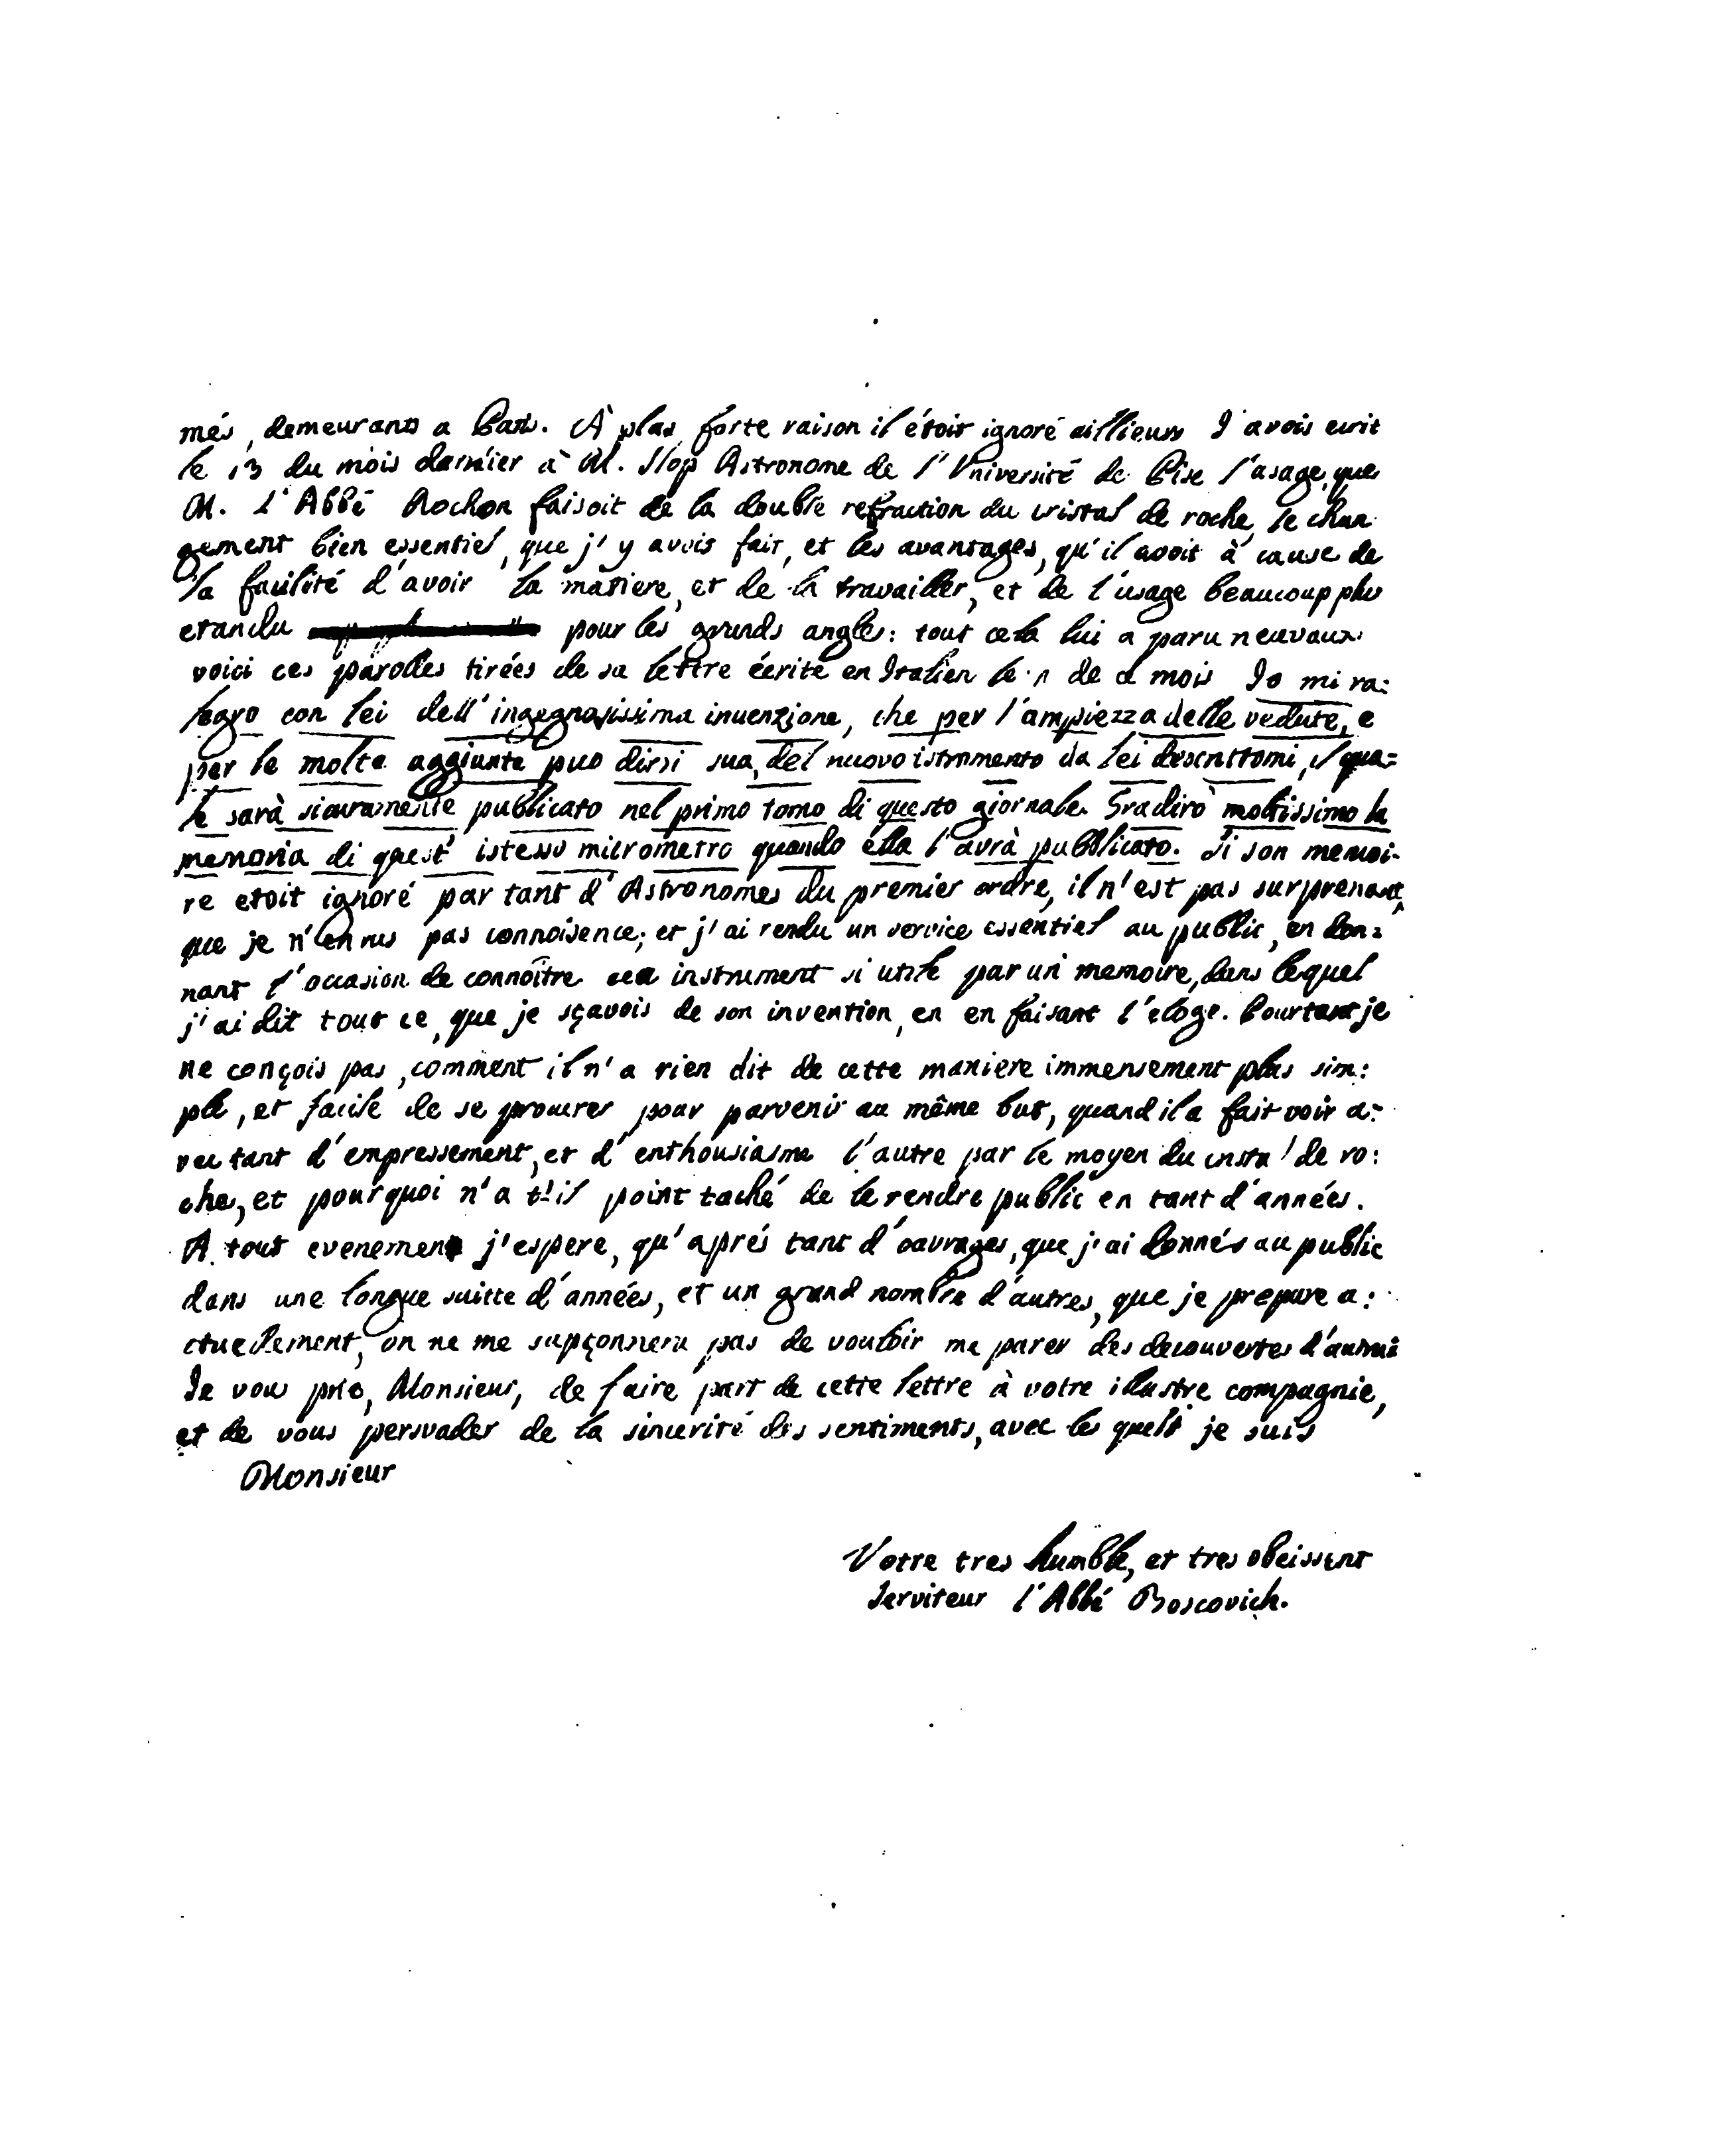 més, demeurants a Paris. À plus forte raison il étoit ignoré aillieurs J'avois ecrit
le 13 du mois darnier à M. Slop Astronome de l'Vniversité de Pise l'usage, que
M. l'Abbé Rochon faisoit de la double refraction du cristal de roche, le chan
gement bien essentiel, que j'y avois fait, et les avantages, qu'il avoit à cause de
la facilité d'avoir la matiere, et de la travailler, et de l'usage beaucoup plus
etandu pour les grands angles: tout cela lui a paru neuvaux
voici ces parolles tirées de sa lettre écrite en Italien le de ce mois Io mi ra:
legro con lei dell'ingegnosissima inuenzione, che per l'ampiezza delle vedute, e
per le molte aggiunte puo dirsi sua, del nuovo istrumento da lei descrittomi, il qua=
le sarà sicuramente publicato nel primo tomo di questo giornale. Gradirò moltissimo la
memoria di quest' istesso micrometro quando ella l'avrà pubblicato. Si son memoi-
re etoit ignoré par tant d'Astronomes du premier ordre, il n'est pas surprenant
que je n'en eus pas connoisence; et j'ai rendu un service essentiel au public, en don=
nant l'occasion de connoître cet instrument si utile par un memoire, dans lequel
j'ai dit tout ce, que je sçavois de son invention, en en faisant l'éloge. Pourtant je
ne conçois pas, comment il n'a rien dit de cette maniere immensement plus sim:
ple, et facile de se procurer pour parvenir au même but, quand il a fait voir a:
vec tant d'empressement, et d'enthousiasme l'autre par le moyen du cristal de ro:
che, et pourquoi n'a t'il point taché de le rendre public en tant d'années.
A tout evenement j'espere, qu'aprés tant d'ouvrages, que j'ai donnés au public
dans une longue suitte d'années, et un grand nombre d'autres, que je prepare a:
ctuellement, on ne me supçonnera pas de vouloir me parer des decouvertes d'autrui
Je vous prie, Monsieur, de faire part de cette lettre à votre illustre compagnie,
et de vous persvader de la sincerité des sentiments, avec les quels je suis
Monsieur
Votre tres humble, et tres obeissent
Serviteur l'Abbé Boscovich.